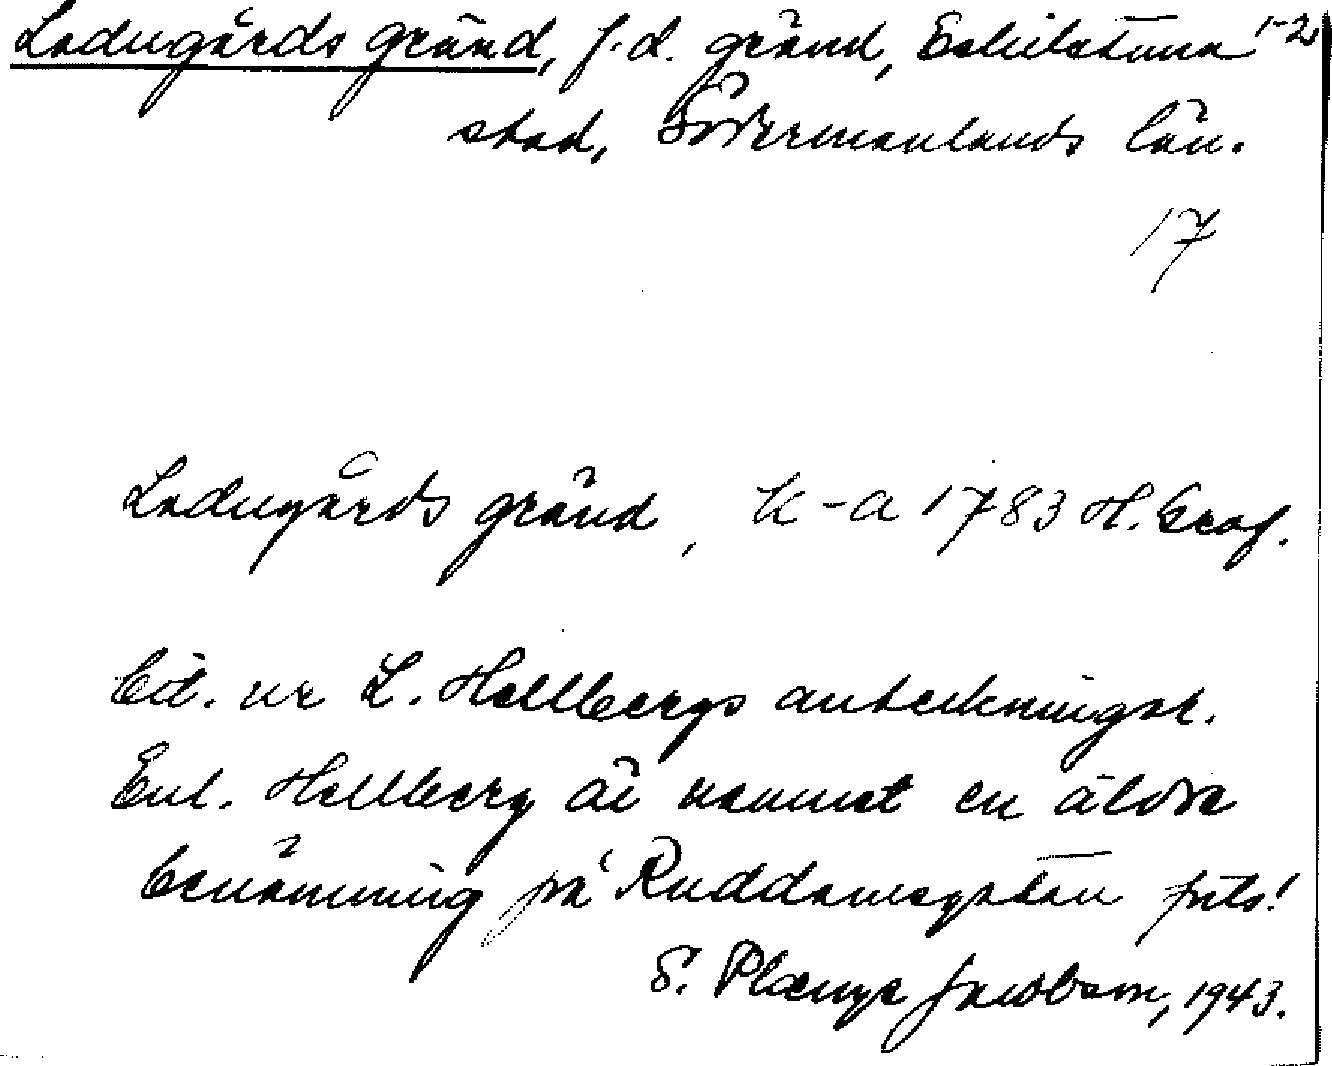 Ladugårds gränd, f.d. gränd, Eskilstuna 1-2
stad, Södermanlands län.
17
Ladugårds gränd, k-a 1783 H. Graf.
Cit. ur L. Hellbergs anteckningar.
Enl. Hellberg är namnet en äldre
benämning på Ruddamsgatan
S. Plænge Jacobson, 1943.